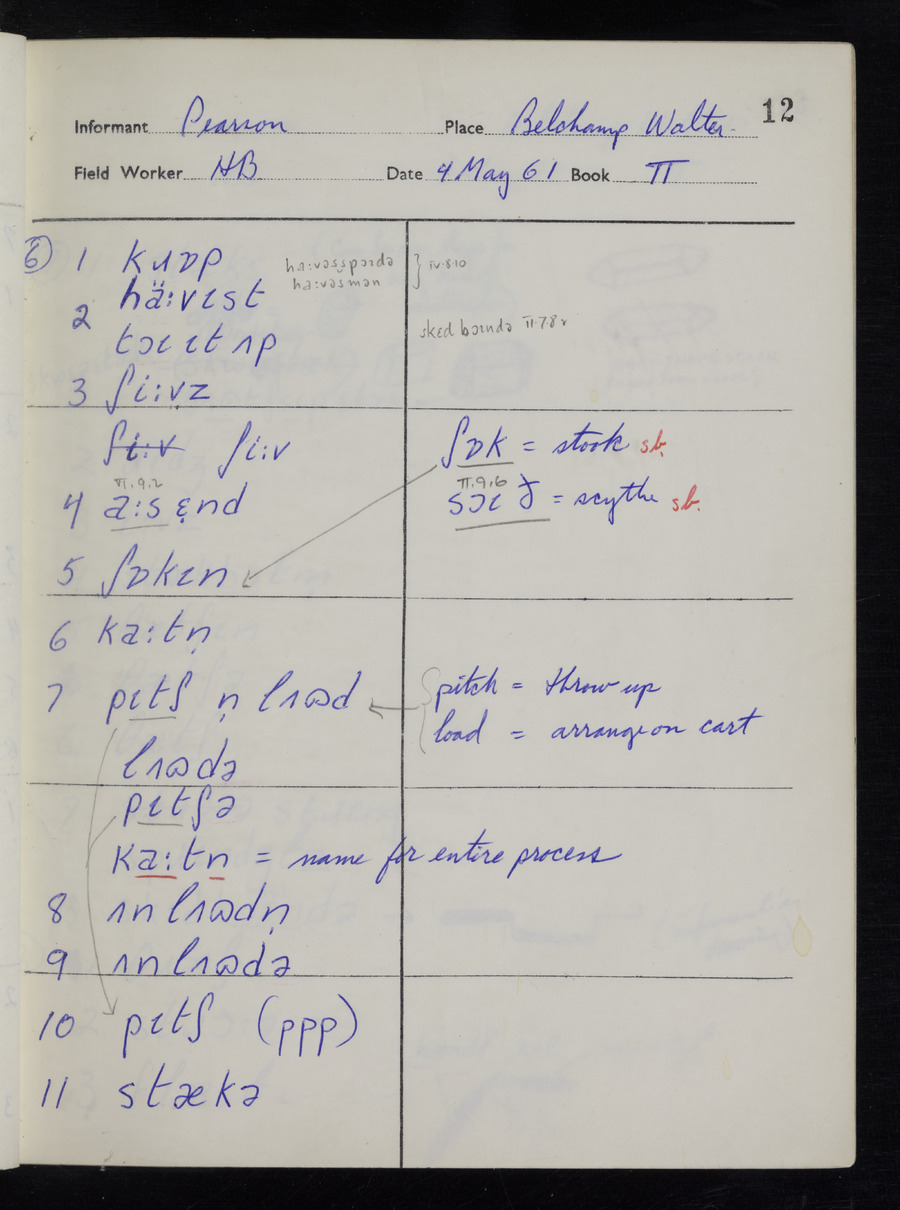 12
Informant Pearson Place Belchamp Walter.
Field Worker HB Date 4 May 61 Book II
⑥ 1 kɹɒp
ha:vəsspɔɪdə } IV.8.10
ha:vəsmən
hä:vɪst
2
tɔɪɪtʌp sked bɔɪndə II.7.8
3 ʃi:vz
ʃi:v ʃi:v ʃɒk = stook sb.
II.9.2 II.9.6
4 a:sɛnd sɔɪð = scythe sb.
5 ʃɒkɪn
6 ka:tn̩
7 pɪtʃ n̩ lʌʊd pitch = throw up
load = arrange on cart
lʌʊdə
pɪtʃə
ka:tn = name for entire process
8 ʌnlʌʊdn̩
9 ʌnlʌʊdə
10 pɪtʃ (ppp)
11 stækə